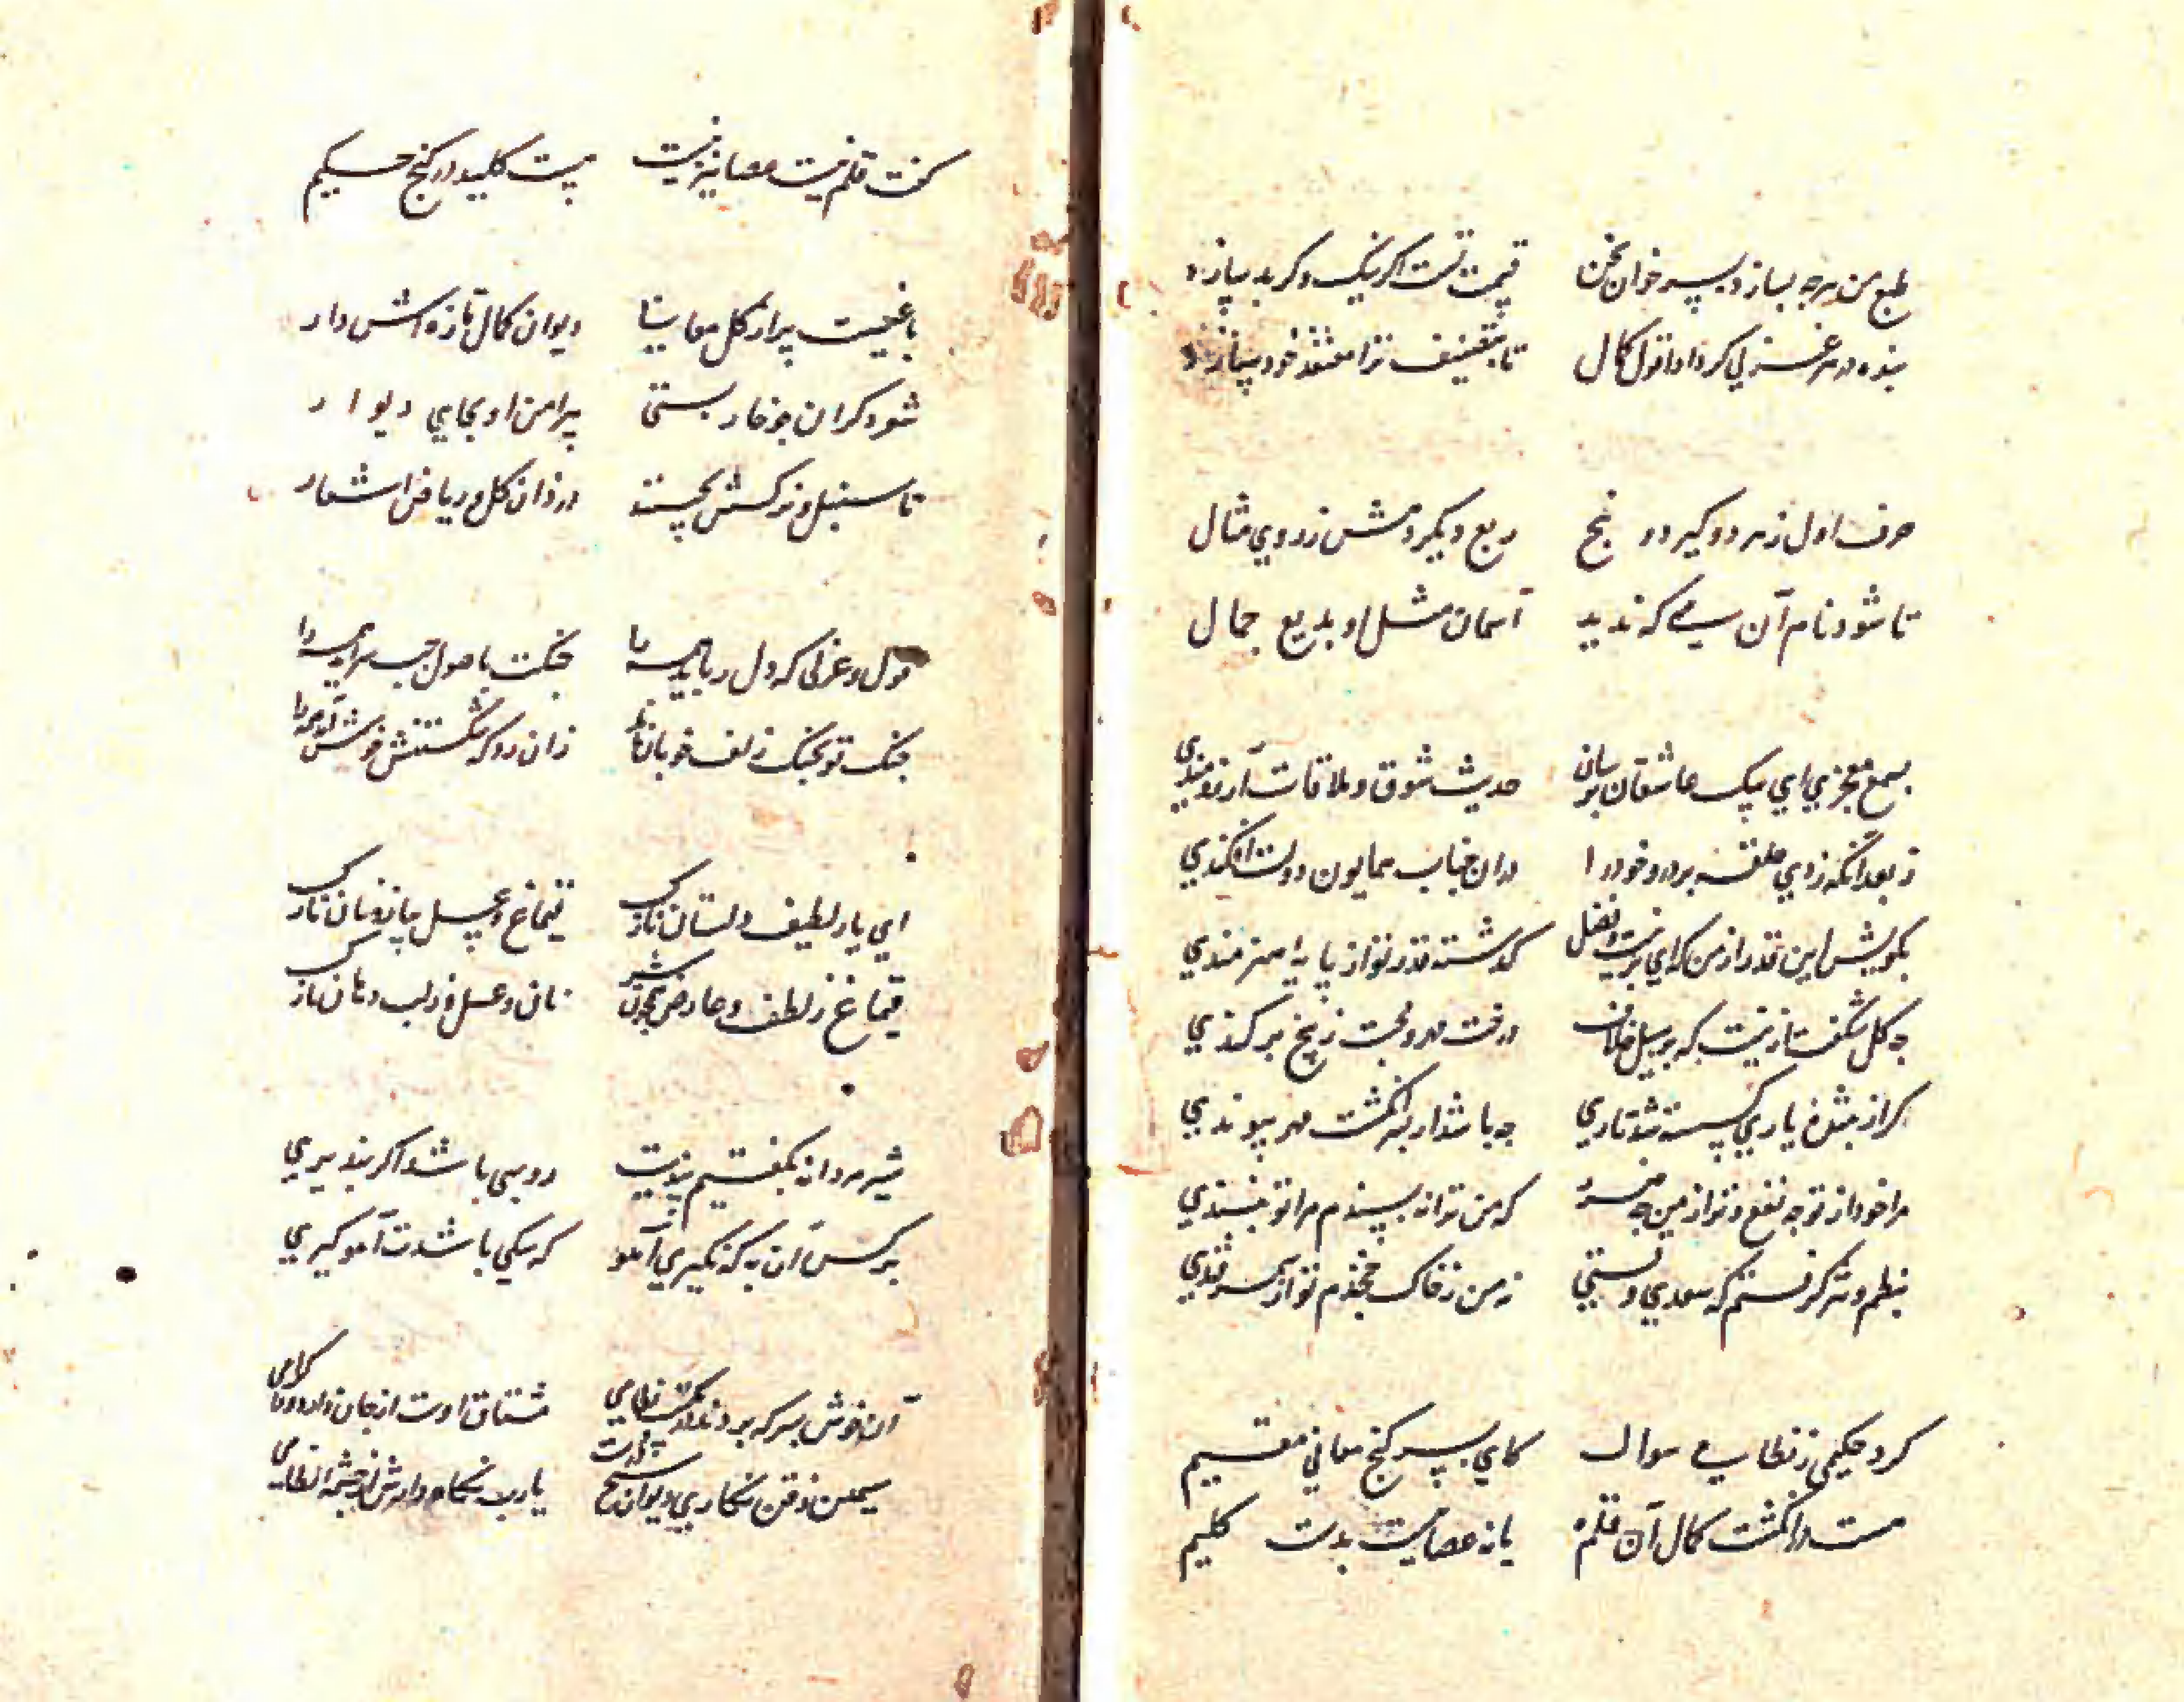 طبع من هرچه بسازد بسر خوان سخن قیمت تست اگر نیک و گر بد سازد
بنده در هر غزلی کرد ادا قول کمال تا تصنیف ترا معتقد خود سازد
حرف اول ز هر دو گیر دو پنج ربع دیگر دمش ز روی مثال
تا شود نام آن بتی که ندید آسمان مثل او بدیع جمال
بسمع معجزی ای پیک عاشقان برسان حدیث شوق و ملاقات آرزومندی
ز بعد آنکه زدی حلقه بر در و خود را در ان جناب همایون دولت افکندی
بگویش این قدر از من که ای بزینت و فضل گذشته قدر تو از پایه هنرمندی
چه گل شکفت ازینت که بر سبیل خلاف درخت مهر و محبت ز بیخ برکندی
گر از میانه یاری گسسته شد تاری چه باشد ار به انگشت مهر پیوندی
مرا خود از تو چه نفع و ترا ز من چه ضرر که من ترا نه پسندم مرا تو نپسندی
بنظم و نثر گرفتم که سعدی دستی نه من ز خاک خجندم تو از سمرقندی
کرد حکیمی ز نظامی سوال کای بسر گنج معانی مقیم
هست در انگشت کمال آن قلم یا نه عصاییست بدست کلیم
گفت قلم نیست عصا نیز نیست هست کلید در گنج حکیم
باغیست پر از گل معانی دیوان کمال تازه اش دار
شو در گران چو خار بستی پیرامن او بجای دیوار
تا سنبل و نرگسش نچینند دزدان گل و ریاض اشعار
قول و غزلی که دل رباید همه را چنگت باصول می سراید همه را
چنگ تو بچنگ زلف خوبان ماند زان رو که شکستنش خوش آید همه را
ای یار لطیف دلستان نازک قیماغ و عسل بیار و نان نازک
قیماغ ز لطف و عارض همچون شیر نان و عسل از لب و دهان نازک
شیر مردانه بگفتیم پندیت روبهی باشد اگر نپذیری
بر کس آن به که نگیری آهو که سگی باشدت آهو گیری
آن خوش پسر که بر دندانگشت نظامی مشتاق اوست از جان دارد ورا گرامی
سیمین ذقن نگاری دیوان حسن یا رب نگاه دارش از چشمه نظامی